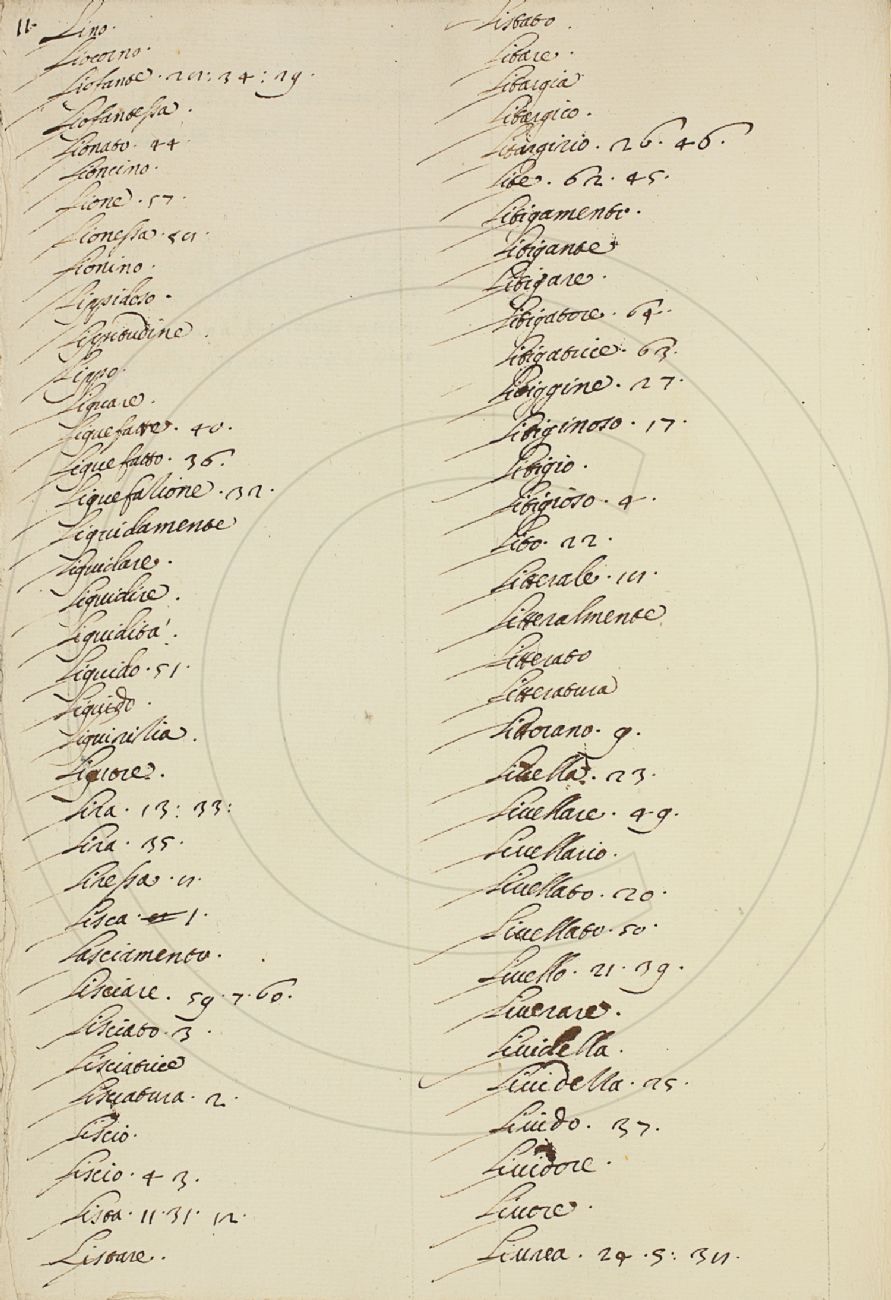 11. Lino.
Liocorno.
Liofante. 28: 34: 29.
Liofantessa.
Lionato. 44
Lioncino.
Lione. 57.
Lionessa. 58.
Lionino.
Lippidoso.
Lippitudine.
Lippo.
Liquare.
Liquefare. 40.
Liquefatto. 36.
Liquefazione. 32.
Liquidamente
Liquidare.
Liquidire.
Liquidità.
Liquido. 51.
Liquido.
Liquirizia.
Liquore.
Lira. 13: 33:
Lira. 35.
Liressa.
Lisca. 1.
Lasciamento.
Lisciare. 59. 7. 60.
Lisciato. 3.
Lisciatrice
Lisciatura. 2.
Liscio.
Liscio. 4 3.
Lista. 11. 31. 12.
Listare.
Listato
Litare.
Litargia
Litargico.
Litargirio. 26. 46.
Lite. 62. 45.
Litigamento.
Litigante
Litigare.
Litigatore. 64.
Litigatrice. 63.
Litiggine. 27.
Litiginoso. 17.
Litigio.
Litigioso. 4.
Lito. 22.
Litterale. 18.
Litteralmente
Litterato
Litteratura
Littorano. 9.
Livella. 23.
Livellare. 49.
Livellario.
Livellato. 20.
Livellato. 50.
Livello. 21. 39.
Liverare.
Lividella.
Lividella. 25.
Livido. 37.
Lividore.
Livore.
Livrea. 24. 5: 38.